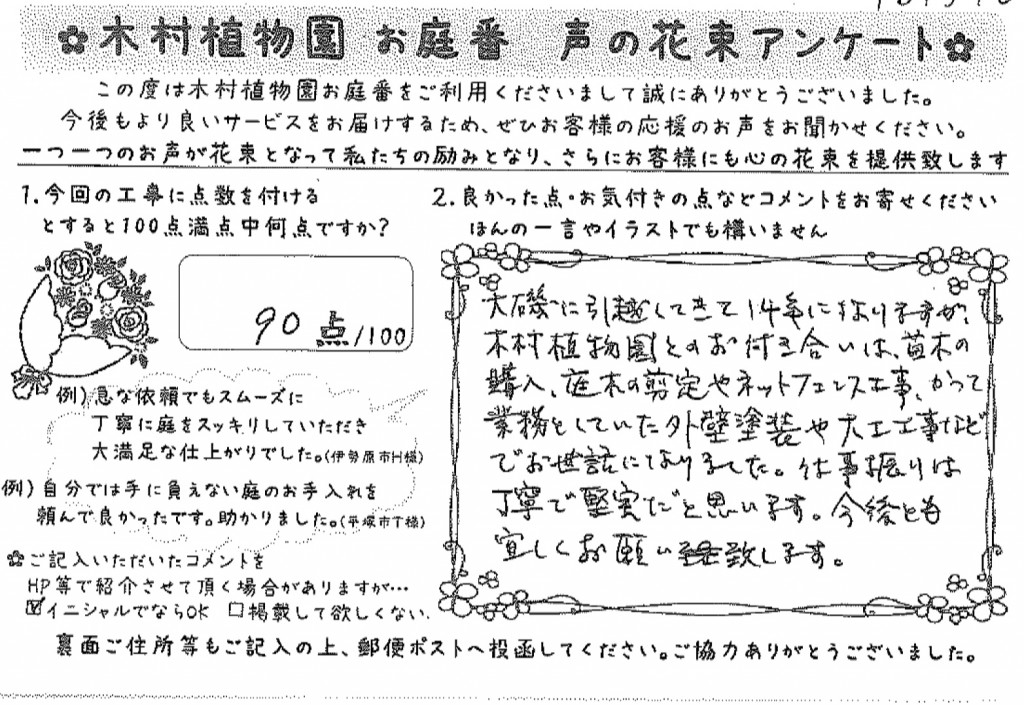 木村植物園 お庭番 声の花束アンケート
この度は木村植物園お庭番をご利用くださいまして誠にありがとうございました。
今後もより良いサービスをお届けするため、ぜひお客様の応援のお声をお聞かせください。
一つ一つのお声が花束となって私たちの励みとなり、さらにお客様にも心の花束を提供致します
1.今回の工事に点数を付ける
とすると100点満点中何点ですか?
90 点/100
例)急な依頼でもスムーズに
丁寧に庭をスッキリしていただき
大満足な仕上がりでした。(伊勢原市H様)
例)自分では手に負えない庭のお手入れを
頼んで良かったです。助かりました。(平塚市T様)
✿ご記入いただいたコメントを
HP等で紹介させて頂く場合がありますが…
☑イニシャルでならOK □掲載して欲しくない.
2.良かった点・お気付きの点などコメントをお寄せください
ほんの一言やイラストでも構いません
大磯に引越してきて14年になりますが、
木村植物園とのお付き合いは、苗木の
購入、庭木の剪定やネットフェンス工事、かつて
業務としていた外壁塗装や大工工事など
でお世話になりました。仕事振りは
丁寧で堅実だと思います。今後とも
宜しくお願い致します。
裏面ご住所等もご記入の上、郵便ポストへ投函してください。ご協力ありがとうございました。